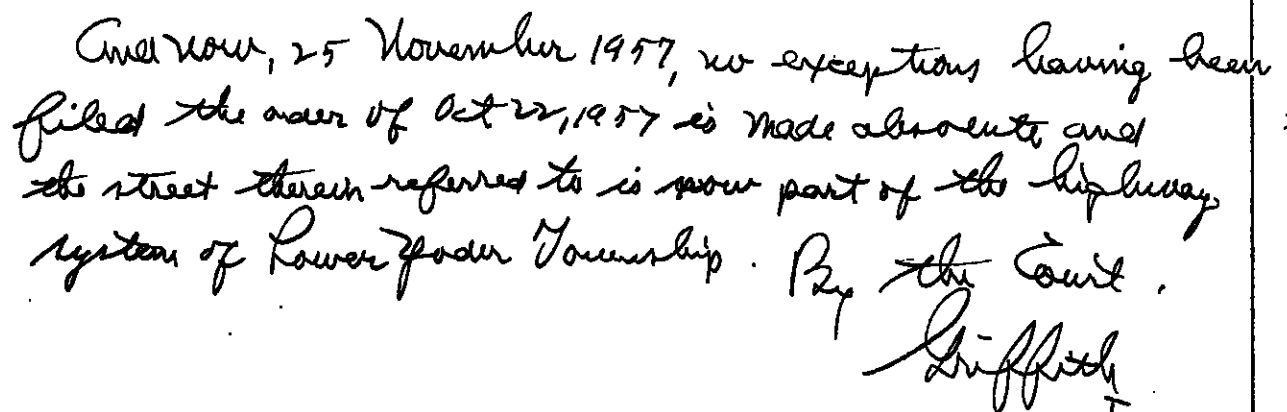 And now, 25 November 1957, no exceptions having been
filed the order of Oct 22, 1957 is made absolute and
the street therein referred to is now part of the highway
system of Lower Yoder Township. By the Court.
Griffith
J